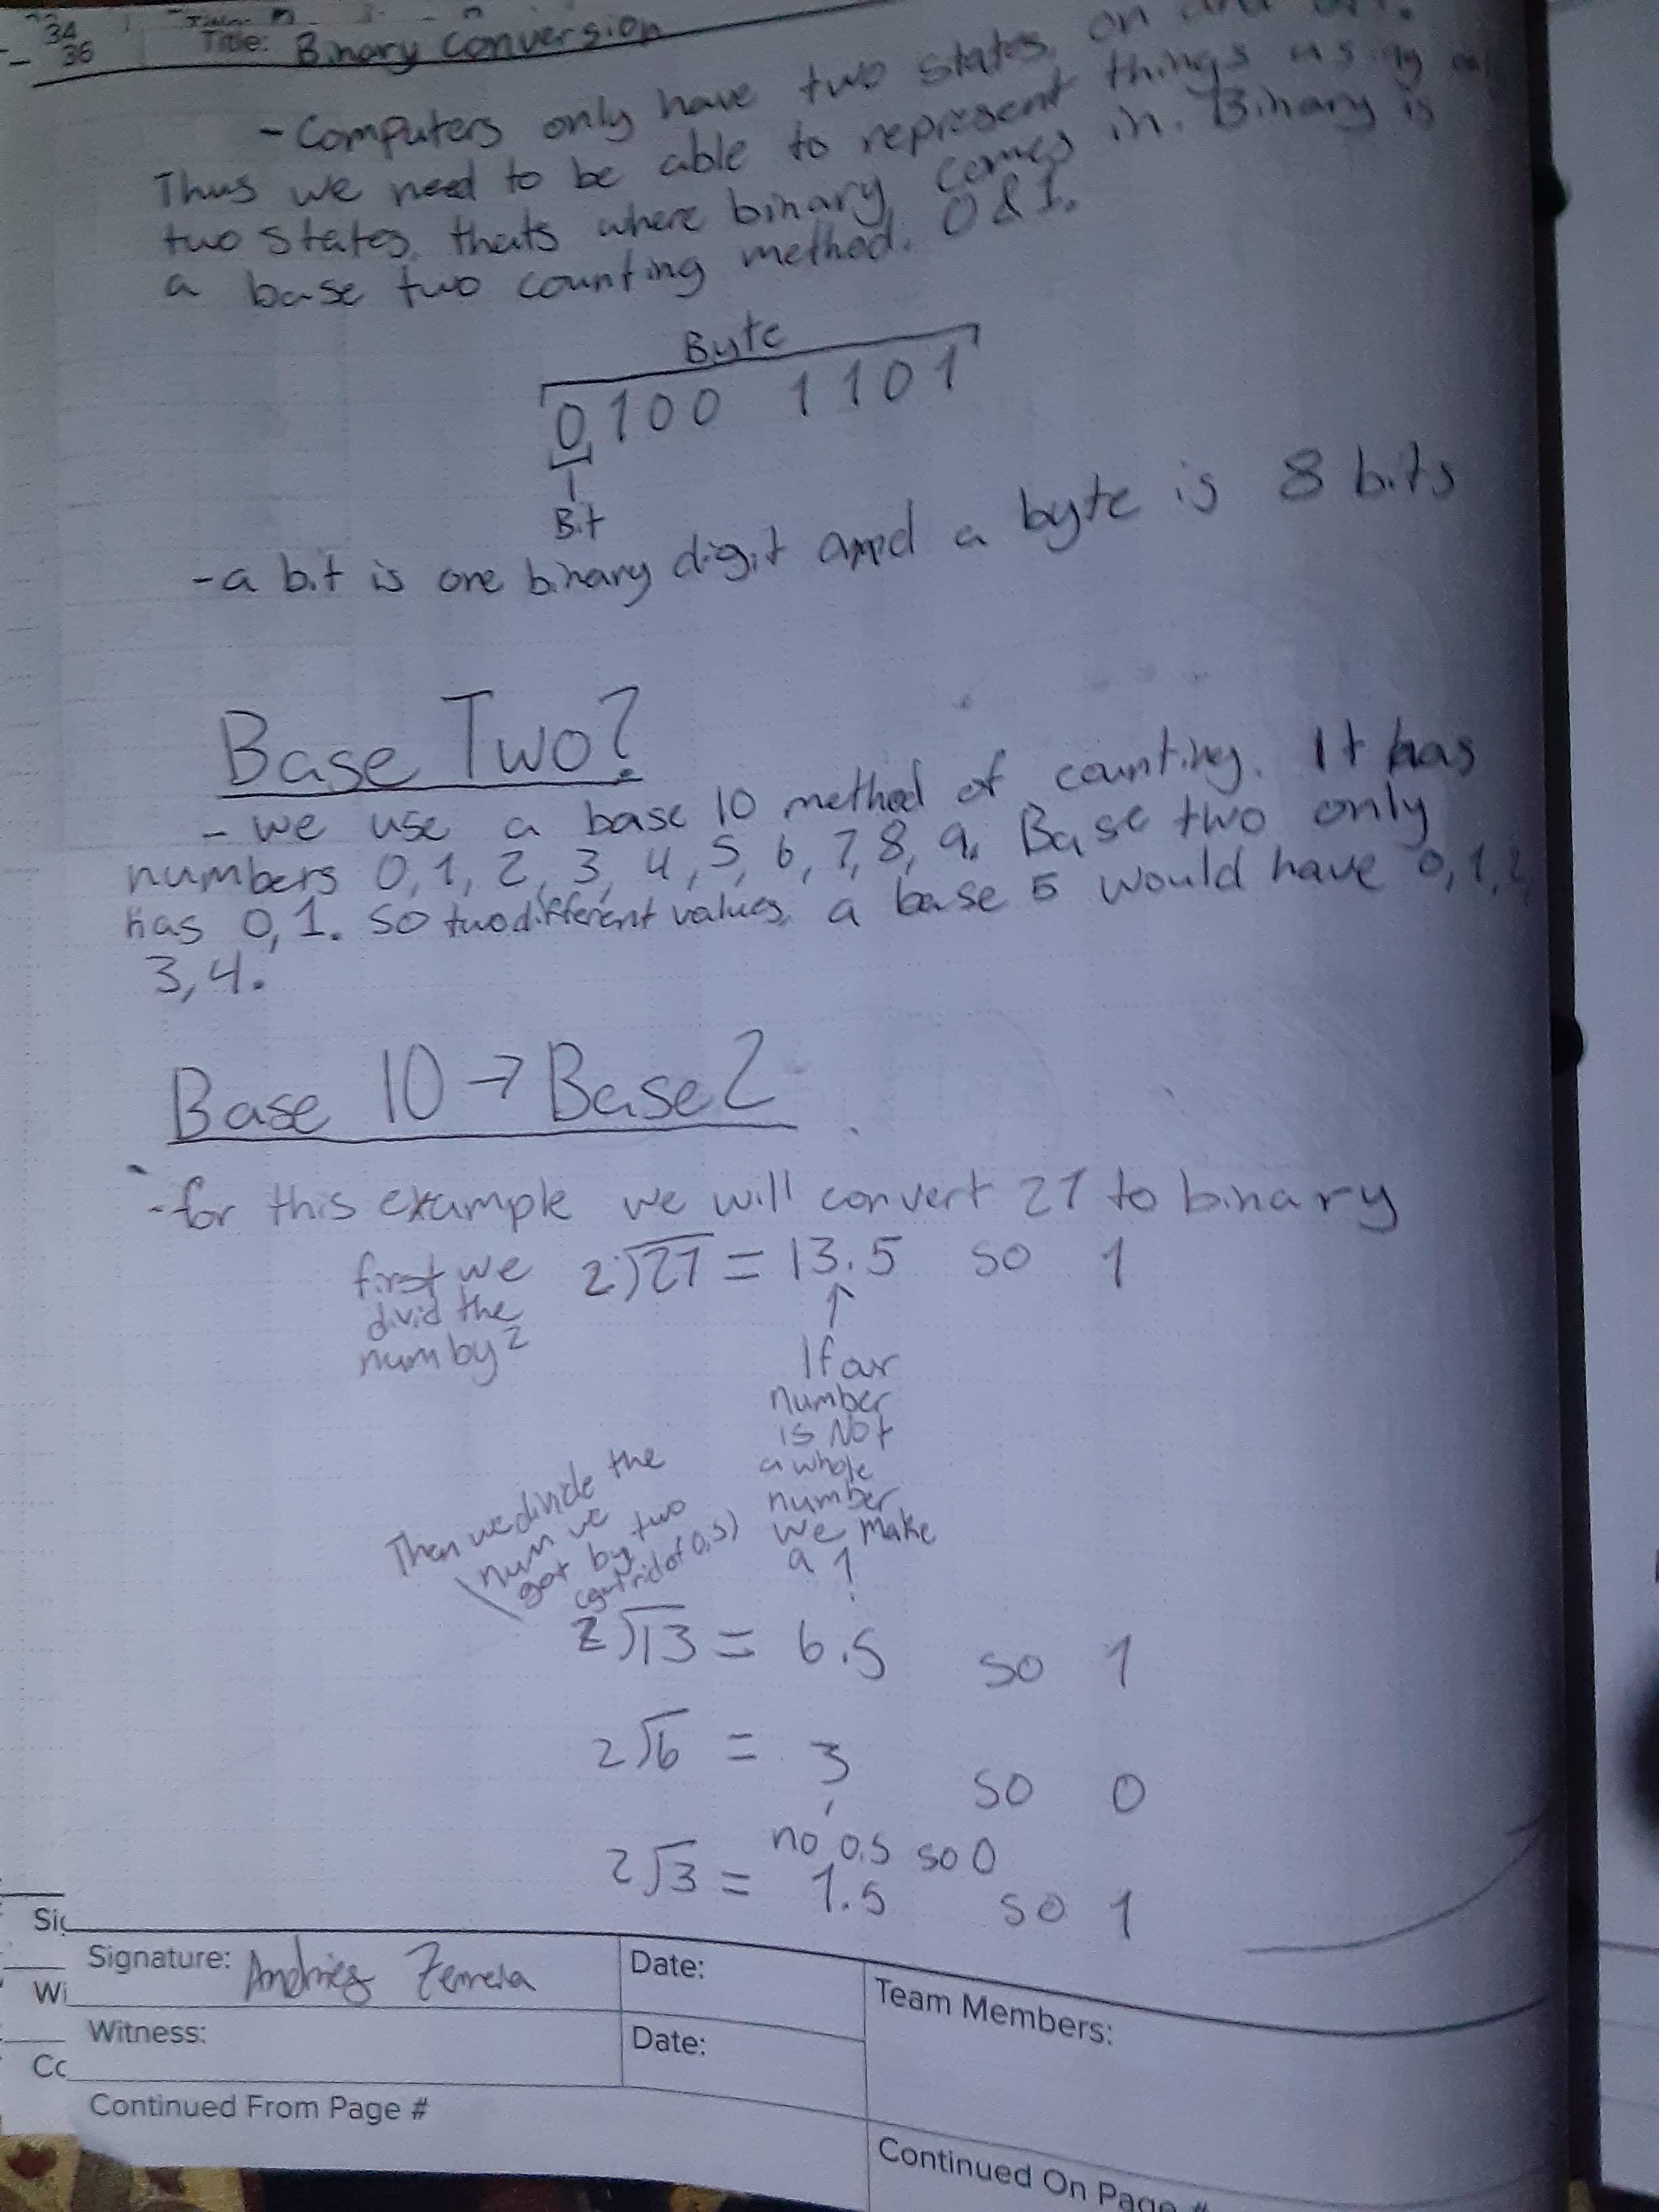 34
36
Title: Binary Conversion
- Computers only have two states, on and off.
Thus we need to be able to represent things using
two states, thats where binary comes in. Binary is
a base two counting method. 0 & 1.
Byte
0100 1101
Bit
- a bit is one binary digit and a byte is 8 bits
Base Two?
- we use a base 10 method of counting. It has
numbers 0, 1, 2, 3, 4, 5, 6, 7, 8, 9. Base two only
has 0, 1. so two different values, a base 5 would have 0, 1, 2,
3, 4.
Base 10 → Base 2
- for this example we will convert 27 to binary
first we
divid the
num by 2
2)27 = 13.5 so 1
↑
If our
number
is Not
a whole
number
we make
a 1
Then we divide the
num we
got by two
(get rid of 0.5)
2)13 = 6.5 so 1
2)6 = 3 so 0
no 0.5 so 0
2)3 = 1.5 so 1
Sig
Signature:
Date:
Team Members:
Wi
Witness:
Date:
Co
Continued From Page #
Continued On Page #